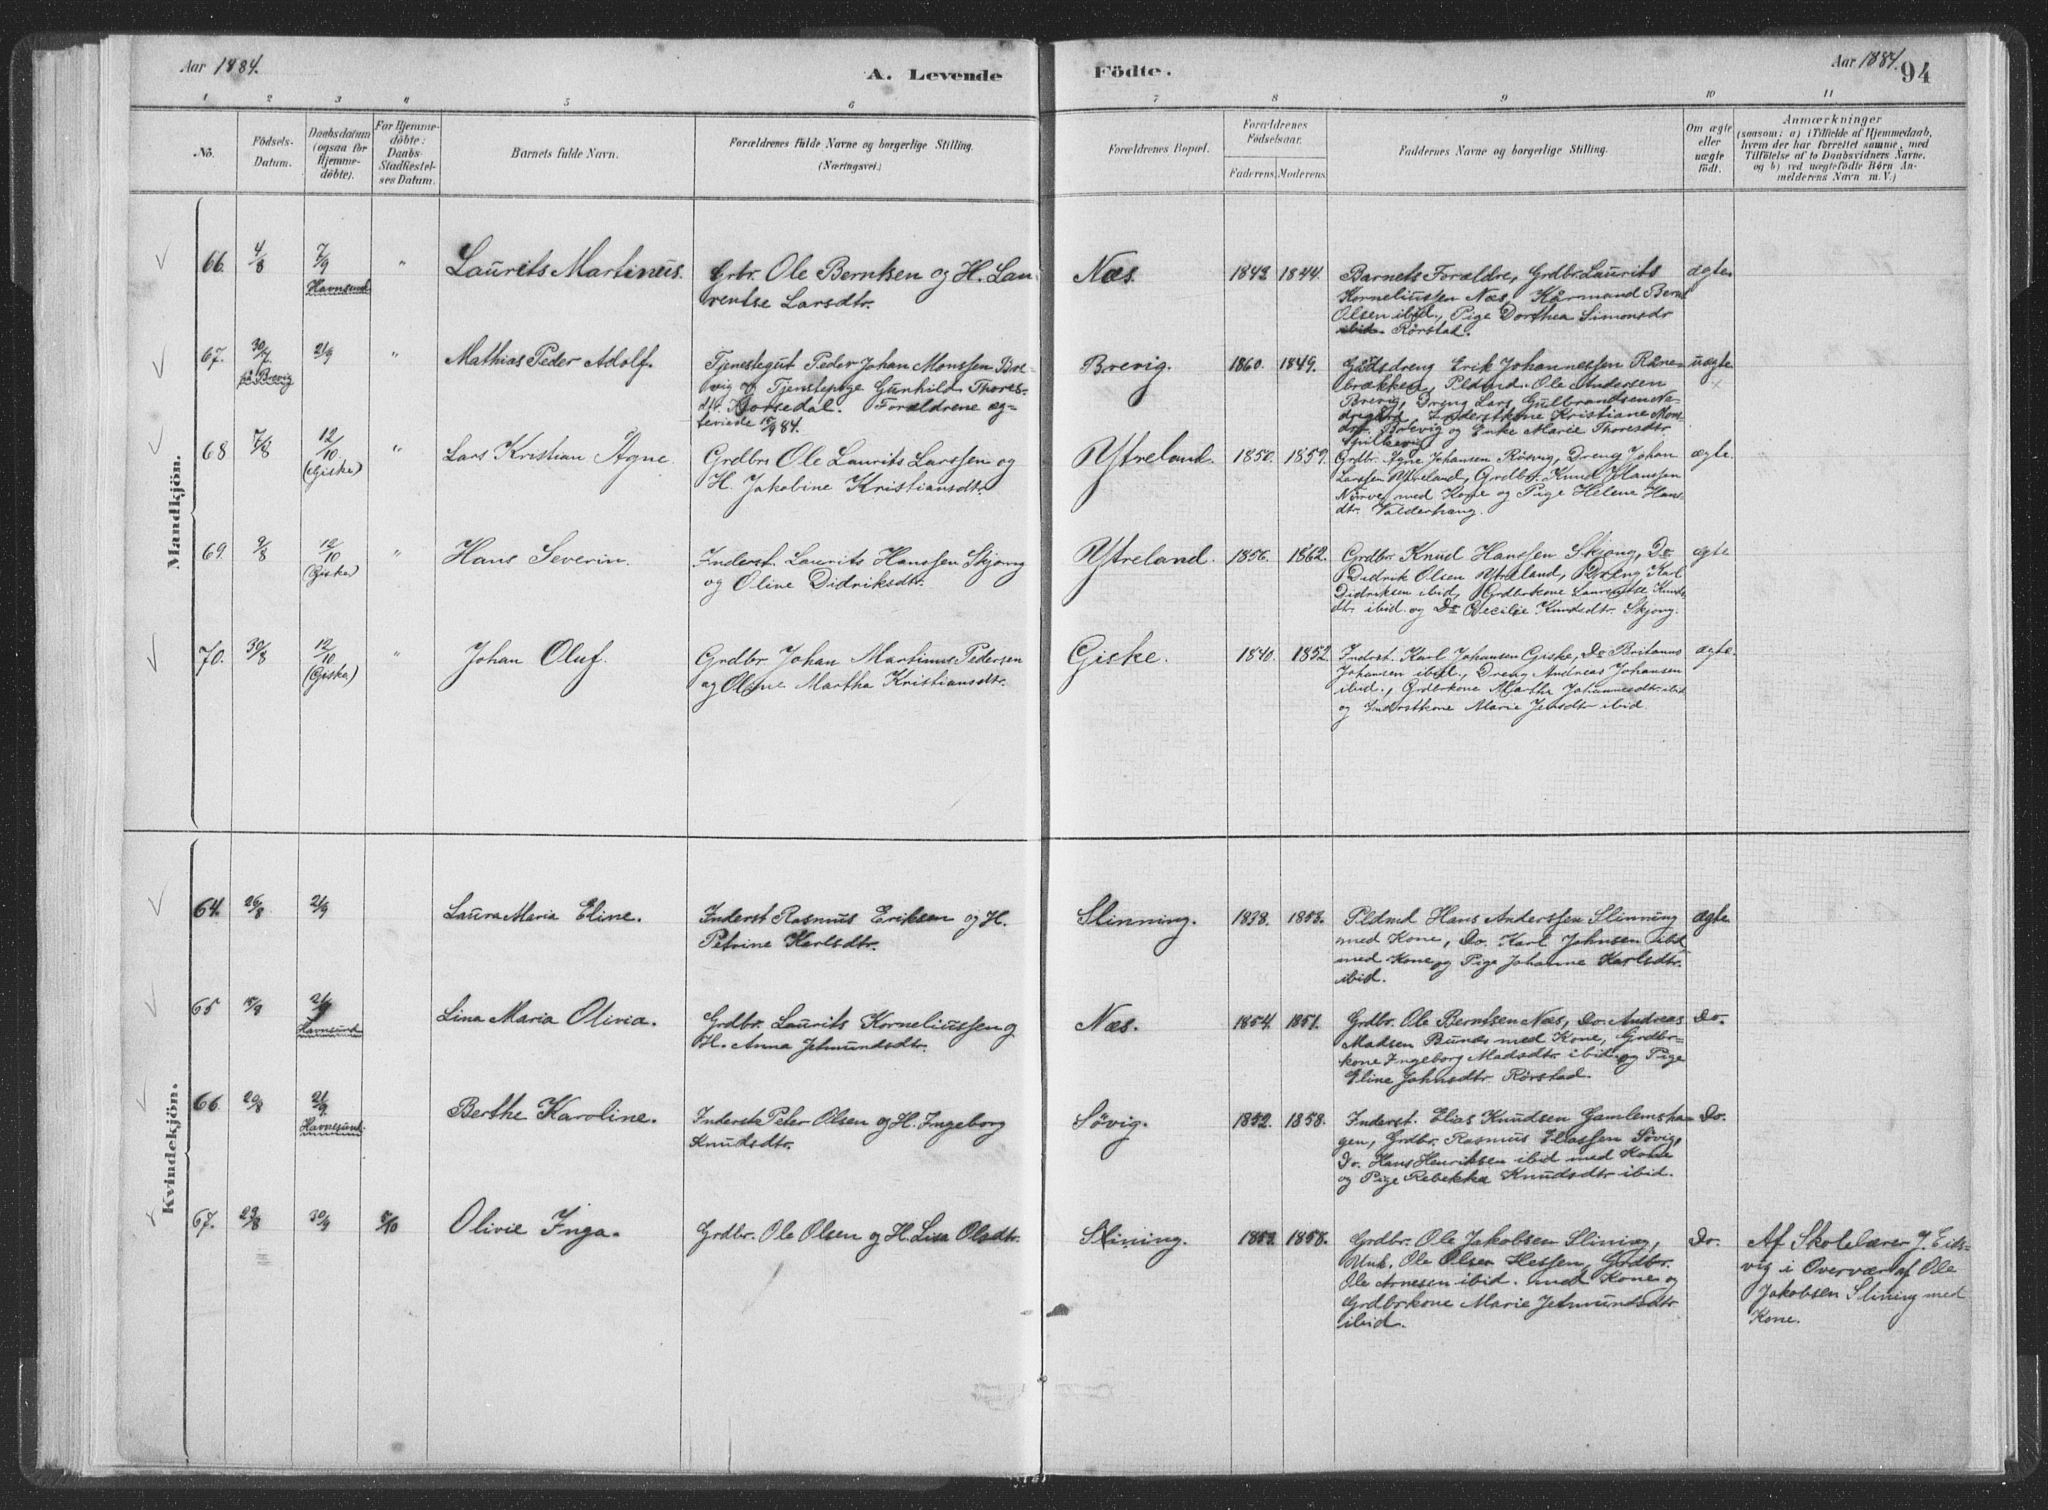 Aar 1884.
A. Levende
Födte.
Aar 1884.
94
1 2 3 4 5 6 7 8 9 10 11
No.
Födsels-
Datum.
Daabsdatum
(ogsaa for
Hjemme-
döbte).
For Hjemme-
döbte:
Daabs-
Stadfæstel-
ses Datum.
Barnets fulde Navn.
Forældrenes fulde Navne og borgerlige Stilling.
(Næringsvei.)
Forældrenes Bopæl.
Forældrenes
Födselsaar.
Faderens. Moderens.
Faddernes Navne og borgerlige Stilling.
Om ægte
eller
uægte
födt.
Anmærkninger
(saasom: a) i Tilfælde af Hjemmedaab,
hvem der har forrettet samme, med
Tilföielse af to Daabsvidners Navne.
og b) ved uægtefödte Börn An-
melderens Navn m. V.)
Mandkjön.
66. 4/8 7/9 " Laurits Martinus.
Havnsund
Grbr. Ole Berntsen og H. Lau-
rentse Larsdtr.
Næs. 1843. 1844.
Barnets Forældre, Grdbr. Laurits
Korneliussen Næs, Kårmand Bernt
Olsen ibid., Pige Dorthea Simonsdr
Rörstad.
ægte.
67. 30/7 21/9 " Mathias Peder Adolf.
på Brevig
Tjenestegut Peder Johan Monssen Bre-
vig og Tjenstepige Gunhild Thores-
dtr. Forældrene æg-
teviede 84.
Brevig. 1860. 1849.
Gådsdreng Erik Johannessen Rane-
brækken, Pldmd. Ole Andersen
Brevig, Dreng Lars Gulbrandsen
Inderstkone Kristiane Mons-
dtr. Brevig og Enke Marie Thoresdtr
uægte
68 7/8 12/10 " Lars Kristian Agne.
(Giske)
Grdbr. Ole Laurits Larssen og
H. Jakobine Kristiansdtr.
Ytreland. 1850. 1859.
Grdbr. Agne Johansen Røsvig, Dreng Johan
Larssen Ytreland, Grdbr. Knud Hanssen
Nörve med Kone og Pige Helene Hans
dtr. Valderhaug.
ægte
69. 9/8 12/10 " Hans Severin.
(Giske)
Inderst. Laurits Hanssen Skjong
og Oline Didriksdtr.
Ytreland. 1856. 1862.
Grdbr. Knud Hanssen Skjong, Do
Didrik Olsen Ytreland, Dreng Karl
Didriksen ibid, Grdbrkone Laurentse Knuds
dtr. ibid og Do Cecilie Knudsdtr. Skjong.
ægte
70. 30/8 12/10 " Johan Oluf.
(Giske)
Grdbr. Johan Martinus Pedersen
og Oline Martha Kristiansdtr.
Giske. 1840. 1852.
Inderst. Karl Johansen Giske, Do Britanus
Johansen ibid., Dreng Andreas Johansen
ibid., Grdbrkone Martha Johannesdtr ibid
og Inderstkone Marie Jensdtr ibid.
ægte.
Kvindekjön.
64. 26/8 21/9 Laura Maria Eline.
Inderst Rasmus Eriksen og H.
Petrine Karlsdtr.
Slinning. 1838. 1853.
Pldmd Hans Anderssen Slinning
med Kone, Do. Karl Johnsen ibd
med Kone og Pige Johanne Karlsdtr.
ibid.
ægte.
65 21/9 Lina Maria Olivia.
Havnsund
Grdbr. Laurits Korneliussen og
H. Anna Jetmundsdtr.
Næs. 1854. 1851.
Grdbr. Ole Berntsen Næs, Do. Andreas
Madsen Bunæs med Kone, Grdbr-
kone Ingeborg Madsdtr. ibid. og Pige
Eline Johnsdtr Rörstad.
Do.
66. 20/8 21/9. Berthe Karoline.
Havnesund.
Inderst. Peter Olsen og H. Ingeborg
Knudsdtr.
Sövig. 1852. 1858.
Inderst. Elias Knudsen Gamlemsha-
gen, Grdbr. Rasmus Eliassen Sövig,
Do. Hans Henriksen ibid med Kone
og Pige Rebekka Knudsdtr ibid.
Do.
67. 29/8 30/9 5/10 Olivie Inga.
Grdbr. Ole Olsen og H. Lisa Olsdtr.
Slining. 1853. 1858.
Grdbr. Ole Jakobsen Slining,
Unk. Ole Olsen Hessen, Grdbr.
Ole Arnesen ibid. med Kone og
Grdbrkone Marie Jetmundsdtr
ibid.
Do.
Af Skolelærer J. Eids-
vig i Overvær af Ole
Jakobsen Slining med
Kone.